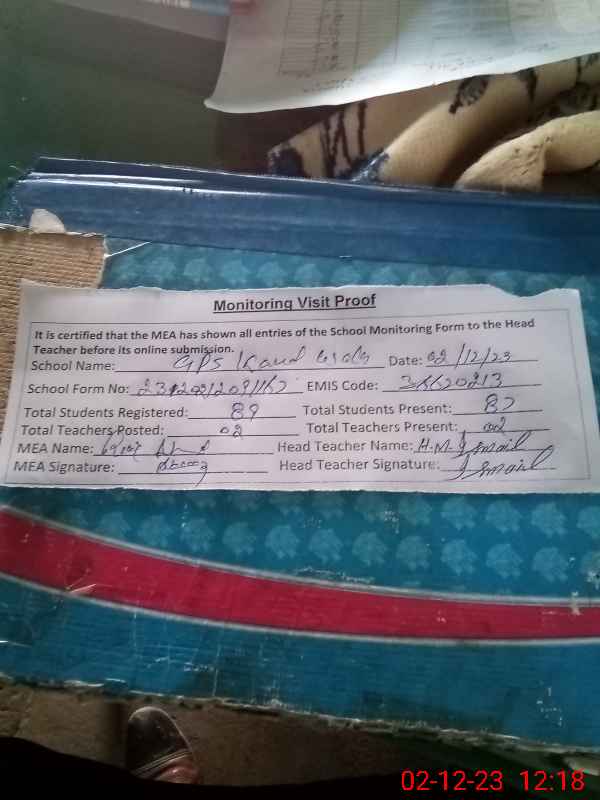 Monitoring Visit Proof
It is certified that the MEA has shown all entries of the School Monitoring Form to the Head
Teacher before its online submission.
School Name: GPS Date: 02/12/23
School Form No: EMIS Code:
Total Students Registered: 89 Total Students Present: 82
Total Teachers Posted: 02 Total Teachers Present: 02
MEA Name: Head Teacher Name: H.M. Ismail
MEA Signature: Head Teacher Signature: Ismail
02-12-23 12:18